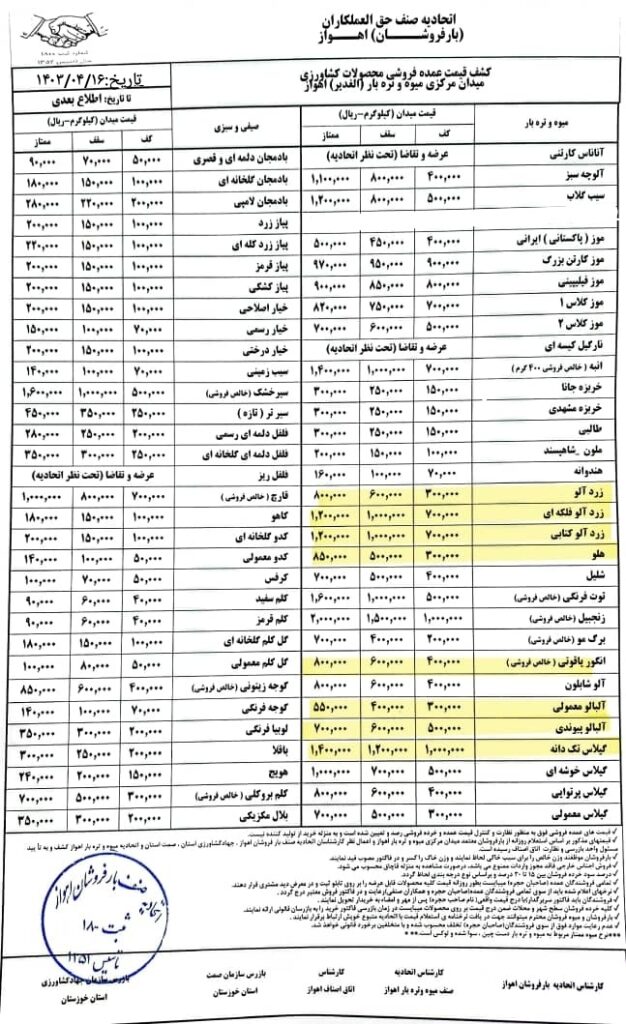 اتحادیه صنف حق العملکاران
(بارفروشــــــان) اهــواز
کشف قیمت عمده فروشی محصولات کشاورزی
میدان مرکزی میوه و تره بار (الغدیر) اهواز
تاریخ:۱۴۰۳/۰۴/۱۶
تا تاریخ: اطلاع بعدی
میوه و تره بار قیمت میدان (کیلوگرم-ریال) صیفی و سبزی قیمت میدان (کیلوگرم-ریال)
کف سقف ممتاز کف سقف ممتاز
آناناس کارتنی عرضه و تقاضا (تحت نظر اتحادیه) بادمجان دلمه ای و قصری ۵۰,۰۰۰ ۷۰,۰۰۰ ۹۰,۰۰۰
آلوچه سبز ۴۰۰,۰۰۰ ۸۰۰,۰۰۰ ۱,۱۰۰,۰۰۰ بادمجان گلخانه ای ۱۰۰,۰۰۰ ۱۵۰,۰۰۰ ۱۸۰,۰۰۰
سیب گلاب ۵۰۰,۰۰۰ ۸۰۰,۰۰۰ ۱,۲۰۰,۰۰۰ بادمجان لامپی ۲۰۰,۰۰۰ ۲۲۰,۰۰۰ ۲۸۰,۰۰۰
پیاز زرد ۱۰۰,۰۰۰ ۱۵۰,۰۰۰ ۲۰۰,۰۰۰
موز (پاکستانی) ایرانی ۴۰۰,۰۰۰ ۴۵۰,۰۰۰ ۵۰۰,۰۰۰ پیاز زرد کله ای ۱۰۰,۰۰۰ ۱۵۰,۰۰۰ ۲۲۰,۰۰۰
موز کارتن بزرگ ۹۰۰,۰۰۰ ۹۵۰,۰۰۰ ۹۷۰,۰۰۰ پیاز قرمز ۱۰۰,۰۰۰ ۱۵۰,۰۰۰ ۲۰۰,۰۰۰
موز فیلیپینی ۸۰۰,۰۰۰ ۸۵۰,۰۰۰ ۹۰۰,۰۰۰ پیاز کشکی ۱۰۰,۰۰۰ ۱۵۰,۰۰۰ ۲۰۰,۰۰۰
موز کلاس ۱ ۷۰۰,۰۰۰ ۷۵۰,۰۰۰ ۸۲۰,۰۰۰ خیار اصلاحی ۱۰۰,۰۰۰ ۱۵۰,۰۰۰ ۲۰۰,۰۰۰
موز کلاس ۲ ۵۰۰,۰۰۰ ۶۰۰,۰۰۰ ۷۰۰,۰۰۰ خیار رسمی ۷۰,۰۰۰ ۱۰۰,۰۰۰ ۱۵۰,۰۰۰
نارگیل کیسه ای عرضه و تقاضا (تحت نظر اتحادیه) خیار درختی ۱۰۰,۰۰۰ ۱۵۰,۰۰۰ ۲۰۰,۰۰۰
انبه (خالص فروشی ۴۰۰ گرم) ۷۰۰,۰۰۰ ۱,۰۰۰,۰۰۰ ۱,۴۰۰,۰۰۰ سیب زمینی ۷۰,۰۰۰ ۱۰۰,۰۰۰ ۱۴۰,۰۰۰
خربزه جانا ۱۵۰,۰۰۰ ۲۵۰,۰۰۰ ۳۰۰,۰۰۰ سیرخشک (خالص فروشی) ۵۰۰,۰۰۰ ۱,۰۰۰,۰۰۰ ۱,۶۰۰,۰۰۰
خربزه مشهدی ۱۵۰,۰۰۰ ۲۵۰,۰۰۰ ۳۰۰,۰۰۰ سیر تر (تازه) ۲۵۰,۰۰۰ ۳۵۰,۰۰۰ ۴۵۰,۰۰۰
طالبی ۱۵۰,۰۰۰ ۲۵۰,۰۰۰ ۳۰۰,۰۰۰ فلفل دلمه ای رسمی ۲۰۰,۰۰۰ ۲۵۰,۰۰۰ ۲۸۰,۰۰۰
ملون _شاهپسند ۱۰۰,۰۰۰ ۱۵۰,۰۰۰ ۲۰۰,۰۰۰ فلفل دلمه ای گلخانه ای ۲۵۰,۰۰۰ ۳۰۰,۰۰۰ ۳۵۰,۰۰۰
هندوانه ۷۰,۰۰۰ ۱۰۰,۰۰۰ ۱۶۰,۰۰۰ فلفل ریز عرضه و تقاضا (تحت نظر اتحادیه)
زرد آلو ۳۰۰,۰۰۰ ۶۰۰,۰۰۰ ۸۰۰,۰۰۰ قارچ (خالص فروشی) ۷۰۰,۰۰۰ ۸۰۰,۰۰۰ ۱,۰۰۰,۰۰۰
زرد آلو فلکه ای ۷۰۰,۰۰۰ ۱,۰۰۰,۰۰۰ ۱,۲۰۰,۰۰۰ کاهو ۱۰۰,۰۰۰ ۱۵۰,۰۰۰ ۱۸۰,۰۰۰
زرد آلو کتابی ۷۰۰,۰۰۰ ۱,۰۰۰,۰۰۰ ۱,۲۰۰,۰۰۰ کدو گلخانه ای ۱۰۰,۰۰۰ ۱۵۰,۰۰۰ ۲۰۰,۰۰۰
هلو ۳۰۰,۰۰۰ ۵۰۰,۰۰۰ ۸۵۰,۰۰۰ کدو معمولی ۵۰,۰۰۰ ۱۰۰,۰۰۰ ۱۴۰,۰۰۰
شلیل ۴۰۰,۰۰۰ ۵۰۰,۰۰۰ ۷۰۰,۰۰۰ کرفس ۵۰,۰۰۰ ۷۰,۰۰۰ ۱۰۰,۰۰۰
توت فرنگی (خالص فروشی) ۵۰۰,۰۰۰ ۱,۰۰۰,۰۰۰ ۱,۶۰۰,۰۰۰ کلم سفید ۴۰,۰۰۰ ۶۰,۰۰۰ ۹۰,۰۰۰
زنجبیل (خالص فروشی) ۱,۰۰۰,۰۰۰ ۱,۵۰۰,۰۰۰ ۲,۰۰۰,۰۰۰ کلم قرمز ۴۰,۰۰۰ ۶۰,۰۰۰ ۹۰,۰۰۰
برگ مو ۲۰۰,۰۰۰ ۴۰۰,۰۰۰ ۷۰۰,۰۰۰ گل کلم گلخانه ای ۱۰۰,۰۰۰ ۱۵۰,۰۰۰ ۱۸۰,۰۰۰
انگور یاقوتی (خالص فروشی) ۴۰۰,۰۰۰ ۶۰۰,۰۰۰ ۸۰۰,۰۰۰ گل کلم معمولی ۵۰,۰۰۰ ۸۰,۰۰۰ ۱۰۰,۰۰۰
آلو شابلون ۴۰۰,۰۰۰ ۶۰۰,۰۰۰ ۸۰۰,۰۰۰ گوجه زیتونی (خالص فروشی) ۴۰۰,۰۰۰ ۶۰۰,۰۰۰ ۸۵۰,۰۰۰
آلبالو معمولی ۳۰۰,۰۰۰ ۴۰۰,۰۰۰ ۵۵۰,۰۰۰ گوجه فرنگی ۷۰,۰۰۰ ۱۰۰,۰۰۰ ۱۴۰,۰۰۰
آلبالو پیوندی ۵۰۰,۰۰۰ ۶۰۰,۰۰۰ ۷۰۰,۰۰۰ لوبیا فرنگی ۲۰۰,۰۰۰ ۳۰۰,۰۰۰ ۳۵۰,۰۰۰
گیلاس تک دانه ۱,۰۰۰,۰۰۰ ۱,۲۰۰,۰۰۰ ۱,۴۰۰,۰۰۰ باقلا ۲۰۰,۰۰۰ ۲۵۰,۰۰۰ ۳۰۰,۰۰۰
گیلاس خوشه ای ۵۰۰,۰۰۰ ۷۰۰,۰۰۰ ۱,۰۰۰,۰۰۰ هویج ۱۵۰,۰۰۰ ۲۰۰,۰۰۰ ۲۴۰,۰۰۰
گیلاس پرتوایی ۴۰۰,۰۰۰ ۶۰۰,۰۰۰ ۸۰۰,۰۰۰ کلم بروکلی (خالص فروشی) ۳۰۰,۰۰۰ ۵۰۰,۰۰۰ ۷۰۰,۰۰۰
گیلاس معمولی ۳۰۰,۰۰۰ ۵۰۰,۰۰۰ ۷۰۰,۰۰۰ بلال مکزیکی ۲۰۰,۰۰۰ ۳۰۰,۰۰۰ ۳۵۰,۰۰۰
صنف بارفروشان اهواز
ثبت ۱۸۰
تاسیس ۱۳۵۱
کارشناس اتحادیه کارشناس اتحادیه کارشناس بازرس سازمان صمت بازرس سازمان جهادکشاورزی
بارفروشان اهواز صنف میوه و تره بار اهواز اتاق اصناف اهواز استان خوزستان استان خوزستان